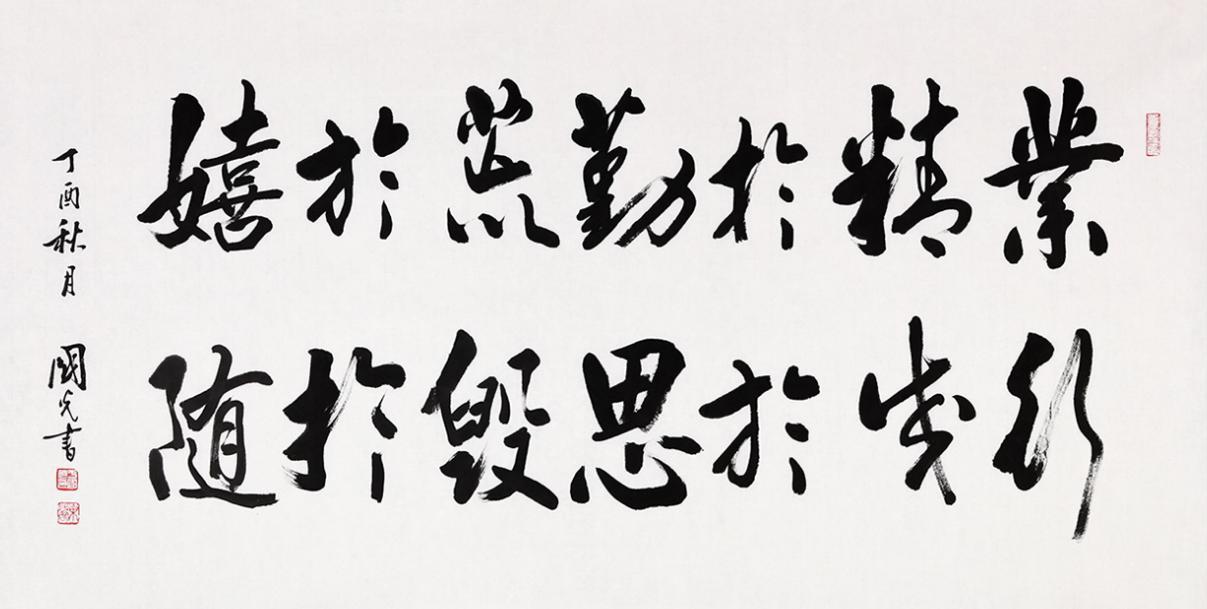 業精於勤荒於嬉
行成於思毀於随
丁酉秋月 國光書